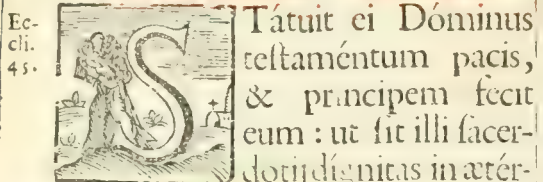 Ec-
cli.
45.
STátuit ei Dóminus
testaméntum pacis,
& principem fecit
eum : ut sit illi sacer-
dotii dignitas in ætér-